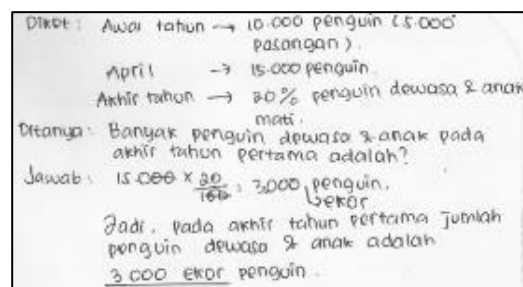 Diket : Awal tahun → 10.000 penguin (5.000
pasangan).
April → 15.000 penguin.
Akhir tahun → 20% penguin dewasa & anak
mati.
Ditanya : Banyak penguin dewasa & anak pada
akhir tahun pertama adalah?
Jawab : 15.000 × 20/100 = 3.000 penguin.
ekor
Jadi, pada akhir tahun pertama jumlah
penguin dewasa & anak adalah
3.000 ekor penguin.